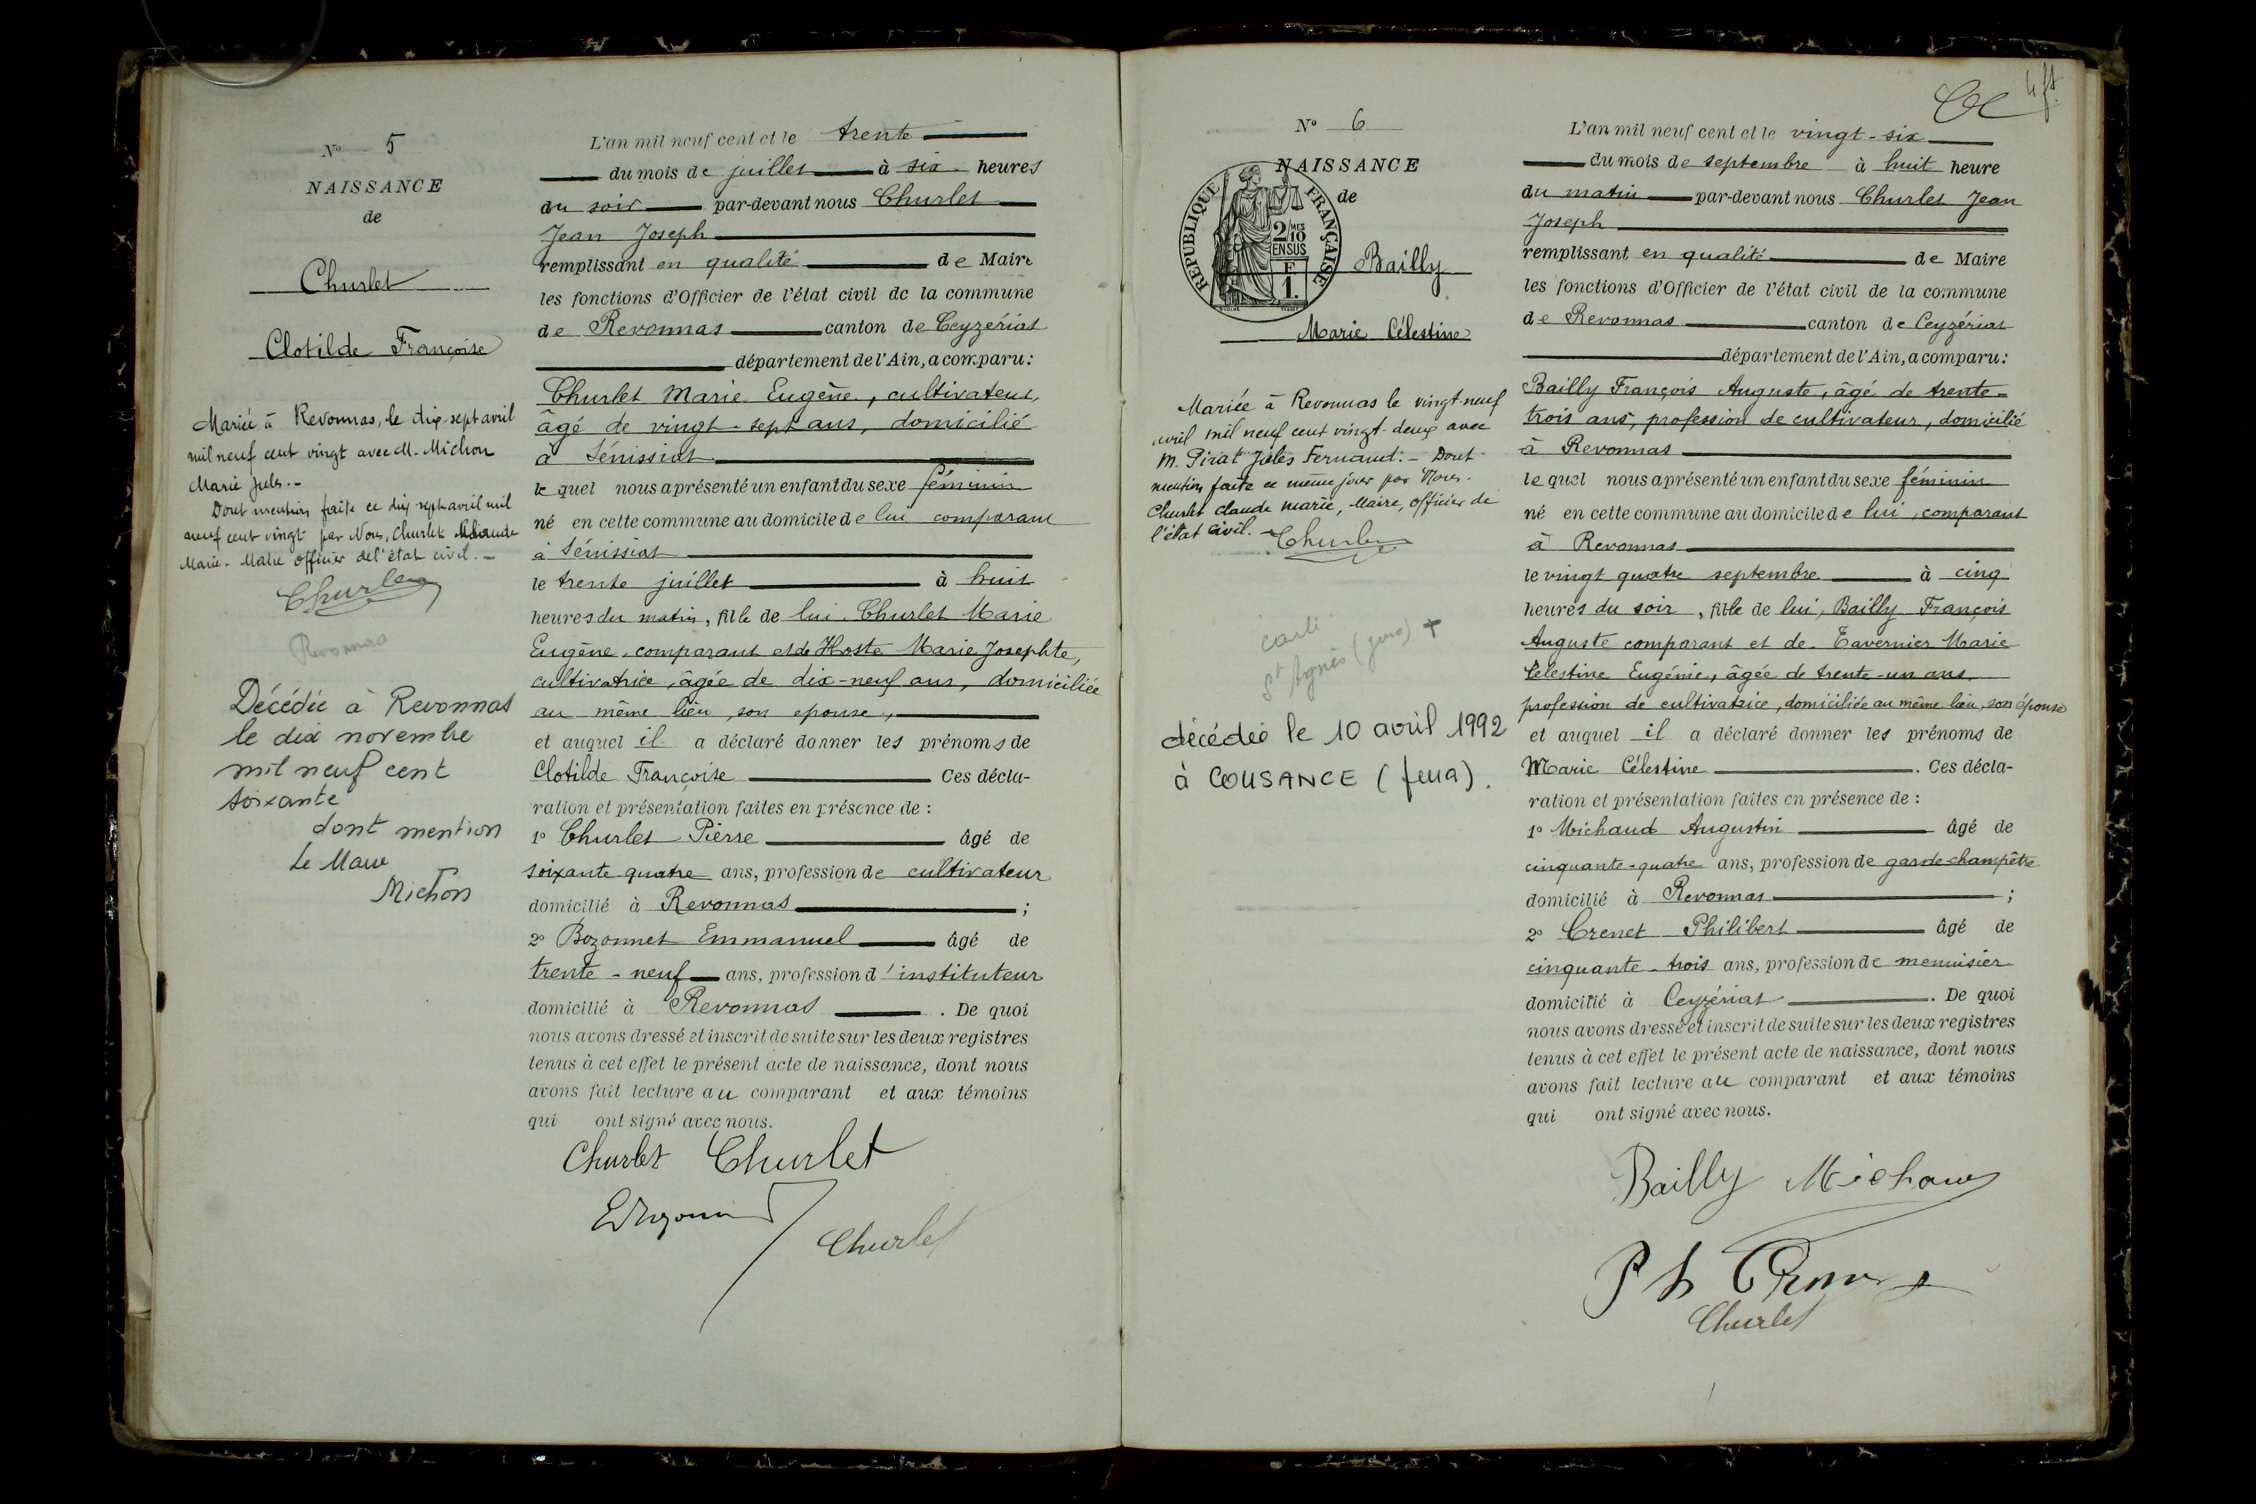 N° 5
NAISSANCE
de
Churlet
Clotilde Françoise
Mariée à Revonnas, le dix-sept avril
mil neuf cent vingt avec M. Michon
Marie Jules.-
Dont mention faite ce dix sept avril mil
neuf cent vingt par Nous, Churlet Claude
Marie. Maire officier de l'état civil.-
Churlet
Revonnas
Décédée à Revonnas
le dix novembre
mil neuf cent
soixante
dont mention
Le Maire
Michon
L'an mil neuf cent et le trente
du mois de juillet à six heures
du soir par-devant nous Churlet
Jean Joseph
remplissant en qualité de Maire
les fonctions d'Officier de l'état civil de la commune
de Revonnas canton de Ceyzériat
département de l'Ain, a comparu:
Churlet Marie Eugène, cultivateur,
âgé de vingt-sept ans, domicilié
à Sénissiat
le quel nous a présenté un enfant du sexe féminin
né en cette commune au domicile de lui comparant
à Sénissiat
le trente juillet à huit
heures du matin, fille de lui Churlet Marie
Eugène, comparant et de Hoste Marie Josephte,
cultivatrice, âgée de dix-neuf ans, domiciliée
au même lieu, son epouse,
et auquel il a déclaré donner les prénoms de
Clotilde Françoise Ces décla-
ration et présentation faites en présence de :
1° Churlet Pierre âgé de
soixante quatre ans, profession de cultivateur
domicilié à Revonnas ;
2° Bozonnet Emmanuel âgé de
trente-neuf ans, profession d'instituteur
domicilié à Revonnas . De quoi
nous avons dressé et inscrit de suite sur les deux registres
tenus à cet effet le présent acte de naissance, dont nous
avons fait lecture au comparant et aux témoins
qui ont signé avec nous.
Churlet Churlet
Churlet
4 ft
N° 6
NAISSANCE
de
RÉPUBLIQUE FRANÇAISE
2/10 MES
EN SUS
F
1.
Bailly
Marie Célestine
Mariée à Revonnas le vingt-neuf
avril mil neuf cent vingt-deux avec
M. Pirat Jules Fernand.- Dont
mention faite ce même jour par Nous.
Churlet Claude Marie, Maire, officier de
l'état civil.- Churlet
St Agnès (Jura) +
décédée le 10 avril 1992
à COUSANCE (Jura).
L'an mil neuf cent et le vingt-six
du mois de septembre à huit heure
du matin par-devant nous Churlet Jean
Joseph
remplissant en qualité de Maire
les fonctions d'Officier de l'état civil de la commune
de Revonnas canton de Ceyzériat
département de l'Ain, a comparu:
Bailly François Auguste, âgé de trente-
trois ans, profession de cultivateur, domicilié
à Revonnas
le quel nous a présenté un enfant du sexe féminin
né en cette commune au domicile de lui, comparant
à Revonnas
le vingt quatre septembre à cinq
heures du soir, fille de lui, Bailly François
Auguste comparant et de Tavernier Marie
Célestine Eugénie, âgée de trente-un ans,
profession de cultivatrice, domiciliée au même lieu, son épouse
et auquel il a déclaré donner les prénoms de
Marie Célestine . Ces décla-
ration et présentation faites en présence de :
1° Michaud Augustin âgé de
cinquante-quatre ans, profession de garde-champêtre
domicilié à Revonnas ;
2° Crenet Philibert âgé de
cinquante-trois ans, profession de menuisier
domicilié à Ceyzériat . De quoi
nous avons dressé et inscrit de suite sur les deux registres
tenus à cet effet le présent acte de naissance, dont nous
avons fait lecture au comparant et aux témoins
qui ont signé avec nous.
Bailly Michaud
Ph Crenet
Churlet